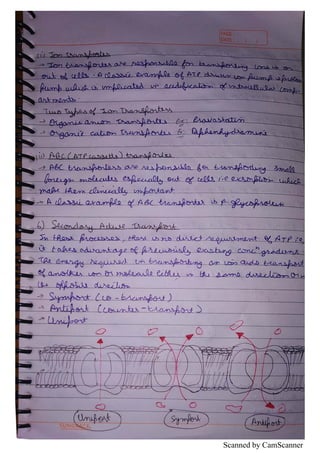 PAGE
DATE
iii) Ion transporter
→ Ion transporter are responsible for transporting ions in or
out of cells. A classic example of ATP driven ion pump is proton
pump which is implicated in acidification of intracellular comp-
artments.
Two Types of Ion Transporters
→ Organic anion Transporter Eg: Pravastatin
→ Organic cation Transporter Eg: Diphenhydramine
iv) ABC (ATP Cassette) transporter
→ ABC transporters are responsible for transporting small
foreign molecules especially out of cells i.e excretion which
make them clinically important
→ A classic example of ABC transporter is P-glycoprotein
b) Secondary Active Transport
In these processes, there is no direct requirement of ATP i.e.
it takes advantage of previously existing concⁿ gradient.
The energy required in transporting an ion aids transport
of another ion or molecule either in the same direction or in
the opposite direction
→ Symport (co-transport)
→ Antiport (counter-transport)
→ Uniport
Uniport
Symport
Antiport
Scanned by CamScanner